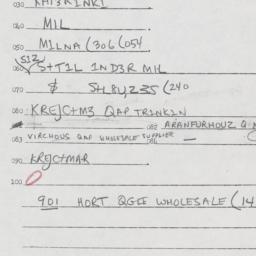 030 KHI3RINKI
040 MIL
050 MILNA (306 (054
512
060 S+TIL IND3R MIL
070 $ SHL8U,235 (240
080 KREJC+M3 QAP TRINKIN
082 ARANFURHOUZ
083 VIRCHOUS QAP WHOLESALE SUPPLIER
090 KREJC+MAR
100 0
901 HORT QGIE WHOLESALE (14